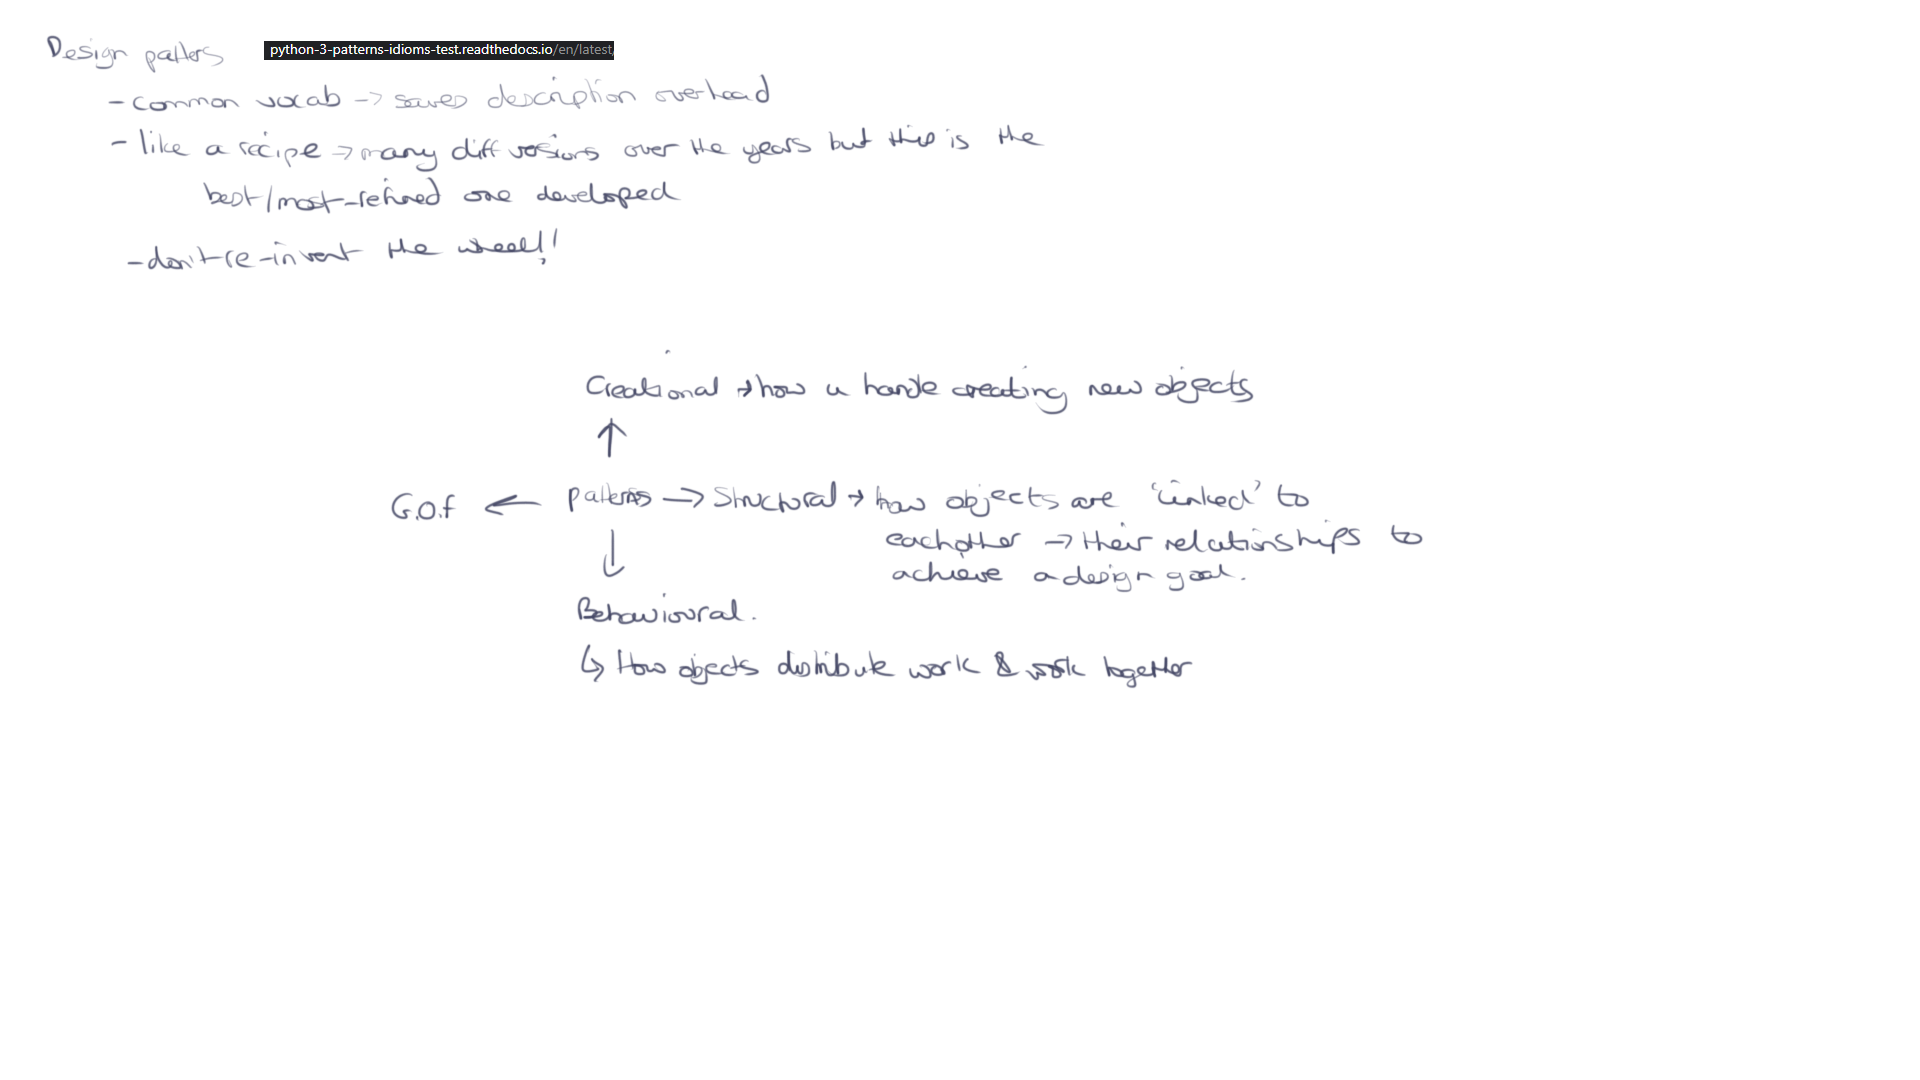 Design patters python-3-patterns-idioms-test.readthedocs.io/en/latest
- common vocab -> saves description overhead
- like a recipe -> many diff versions over the years but this is the
best/most-refined one developed
- don't re-invent the wheel!
Creational -> how u handle creating new objects
G.O.F <- patterns -> Structural -> how objects are 'linked' to
eachother -> their relationships to
achieve a design goal.
Behavioural.
↳ How objects distribute work & work together